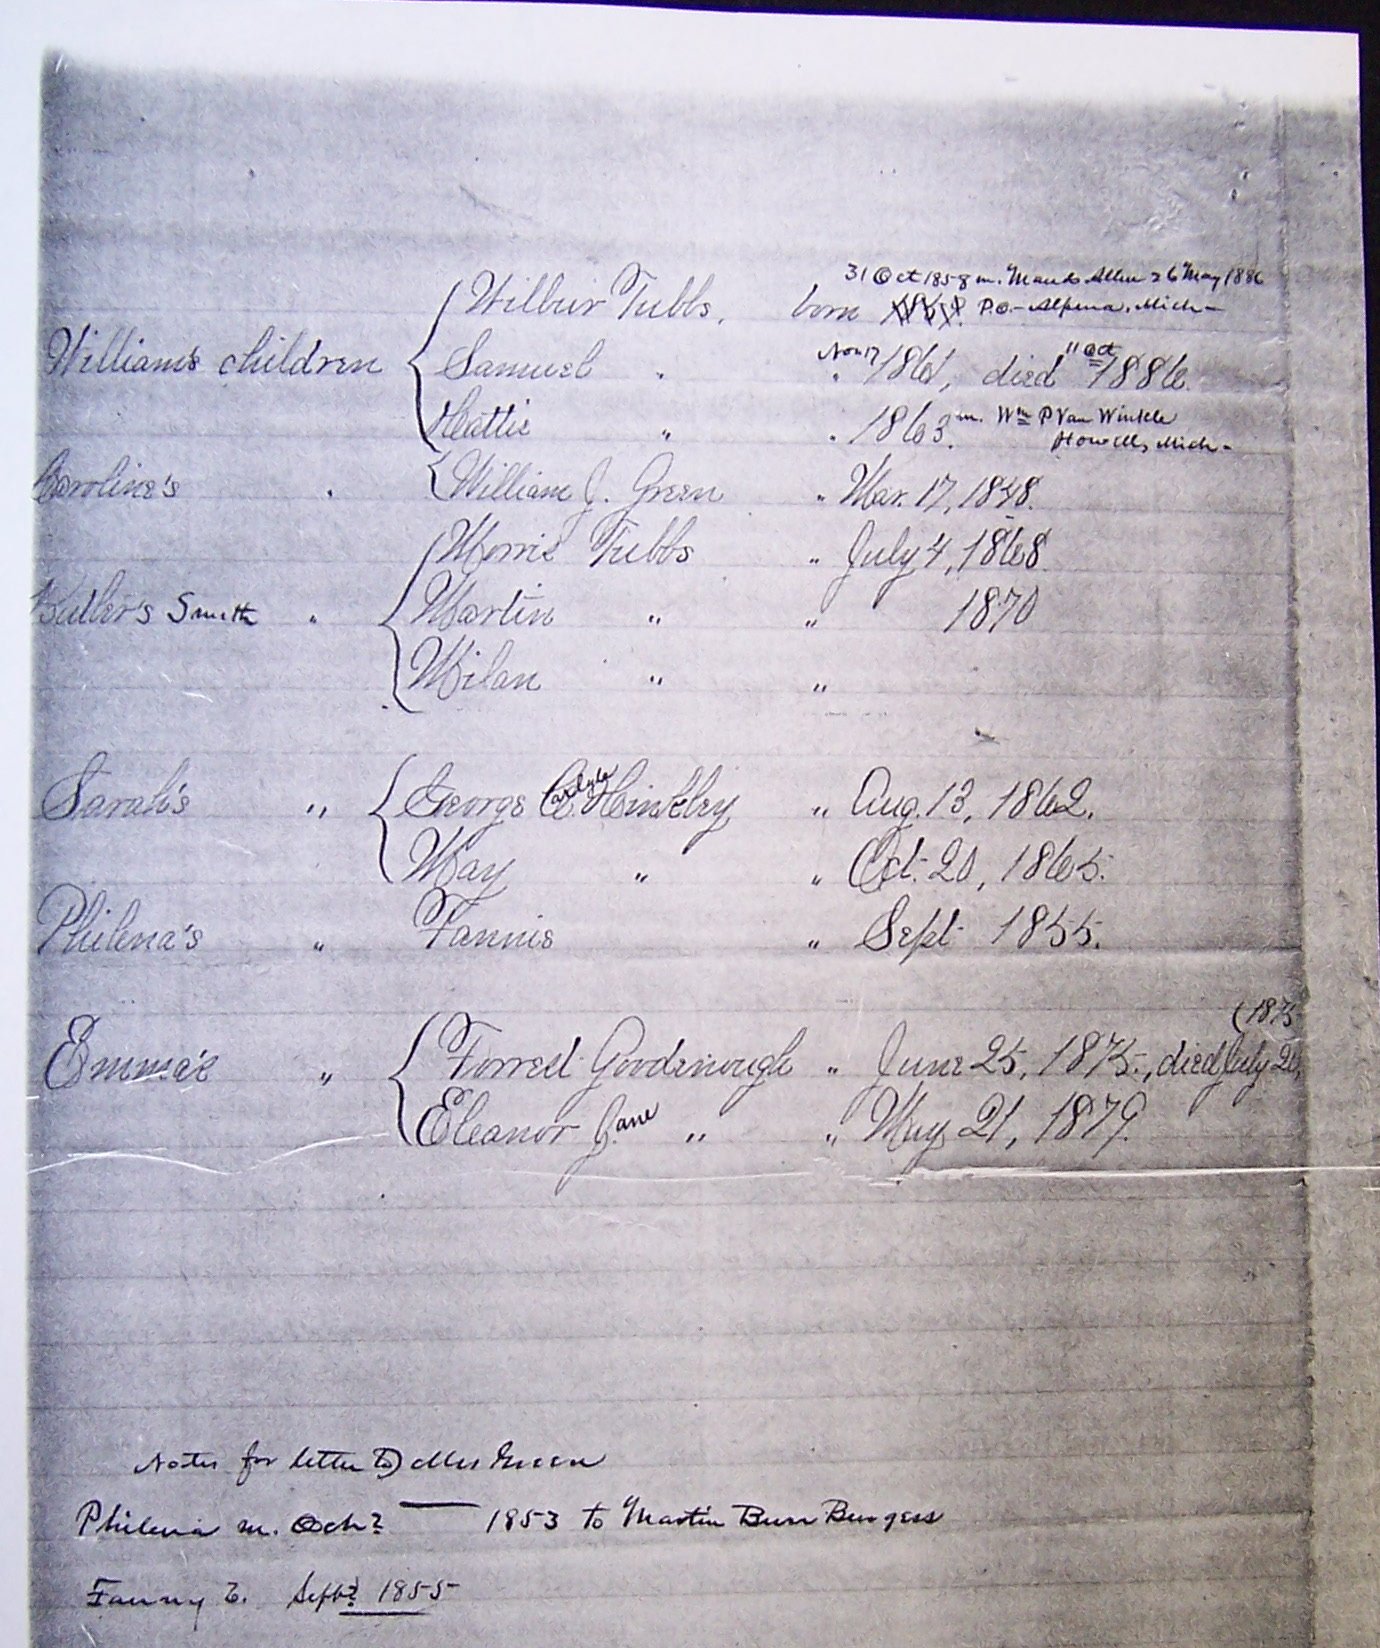 31 Oct 1858 m. Maude Allen 26 May 1886
Wilbur Tubbs, born P.O. - Alpena, Mich -
Nov 17 11 Oct
William's children Samuel " " 1861, died 1886.
Hattie " " 1863. m. Wm P Van Winkle
Howell, Mich -
Caroline's " William J. Green " Mar. 17, 1848.
Morris Tubbs " July 4, 1868
Butler's Smith " Martin " " 1870
Milan " "
Sarah's " George C. Carlyle Hinkley " Aug. 13, 1862.
May " " Oct. 20, 1865.
Philena's " Fannie " Sept. 1855.
(1875
Emma's " Forrest Goodenough " June 25, 1875., died July 20,
Eleanor Jane " " May 21, 1879.
Notes for letter to Mrs Green
Philena m. Oct? — 1853 to Martin Burr Burgess
Fanny b. Sept? 1855